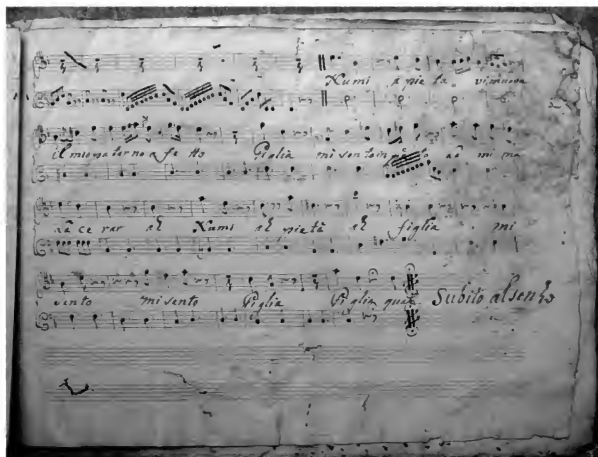 Numi pieta vi muova
il mio paterno affetto Figlia mi sento in petto
ce rar ah Numi ah pietà ah figlia mi
sento mi sento Figlia Figlia qua Subito al segno